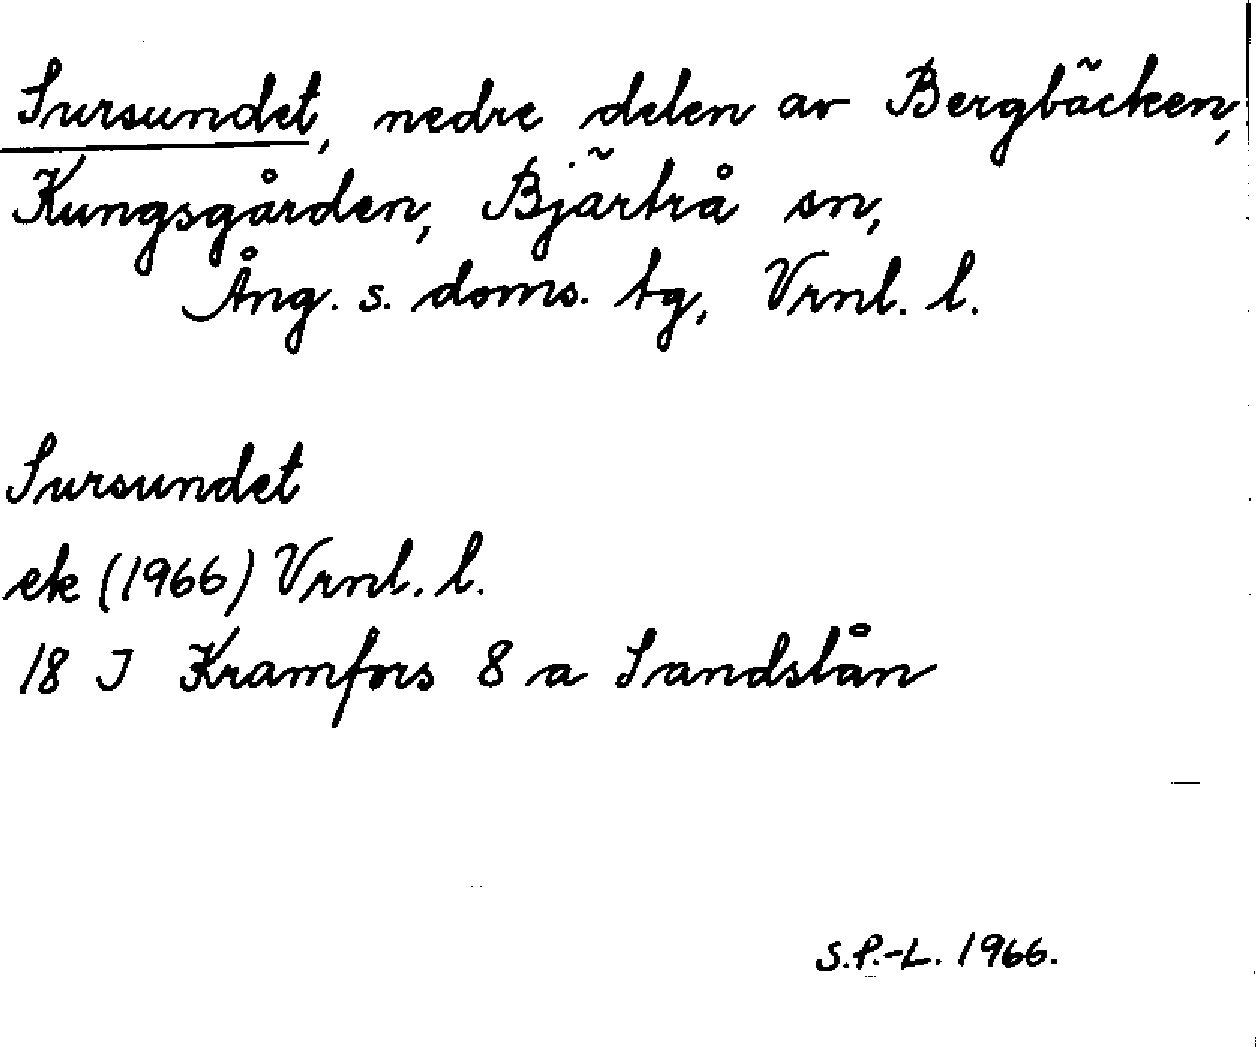 Sursundet, nedre delen av Bergbäcken,
Kungsgården, Bjärtrå sn,
Ång. s. doms. tg, Vrnl. l.
Sursundet
ek (1966) Vrnl. l.
18 J Kramfors 8 a Sandslån
S.P.-L. 1966.